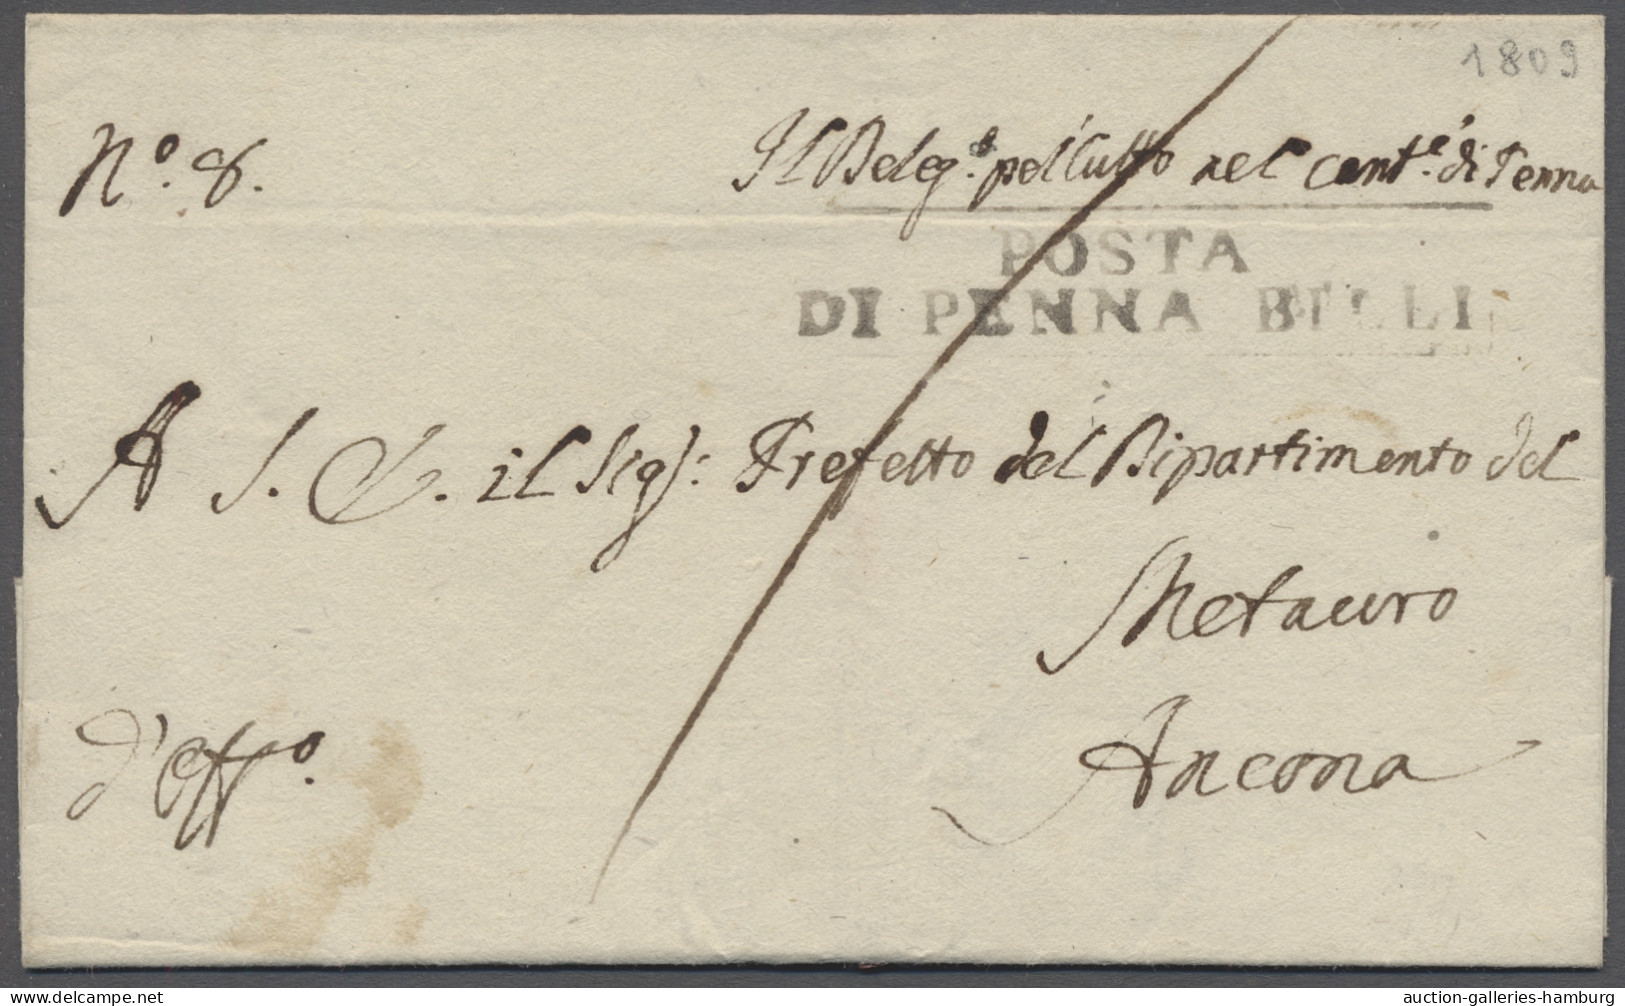 1809
N.º 8.
Il Deleg.º pel Culto nel Cant.e di Penna
POSTA
DI PENNA BILLI
A S. E. il Sig.: Prefetto del Dipartimento del
Metauro
Ancona
d'Uff.º
auction-galleries-hamburg